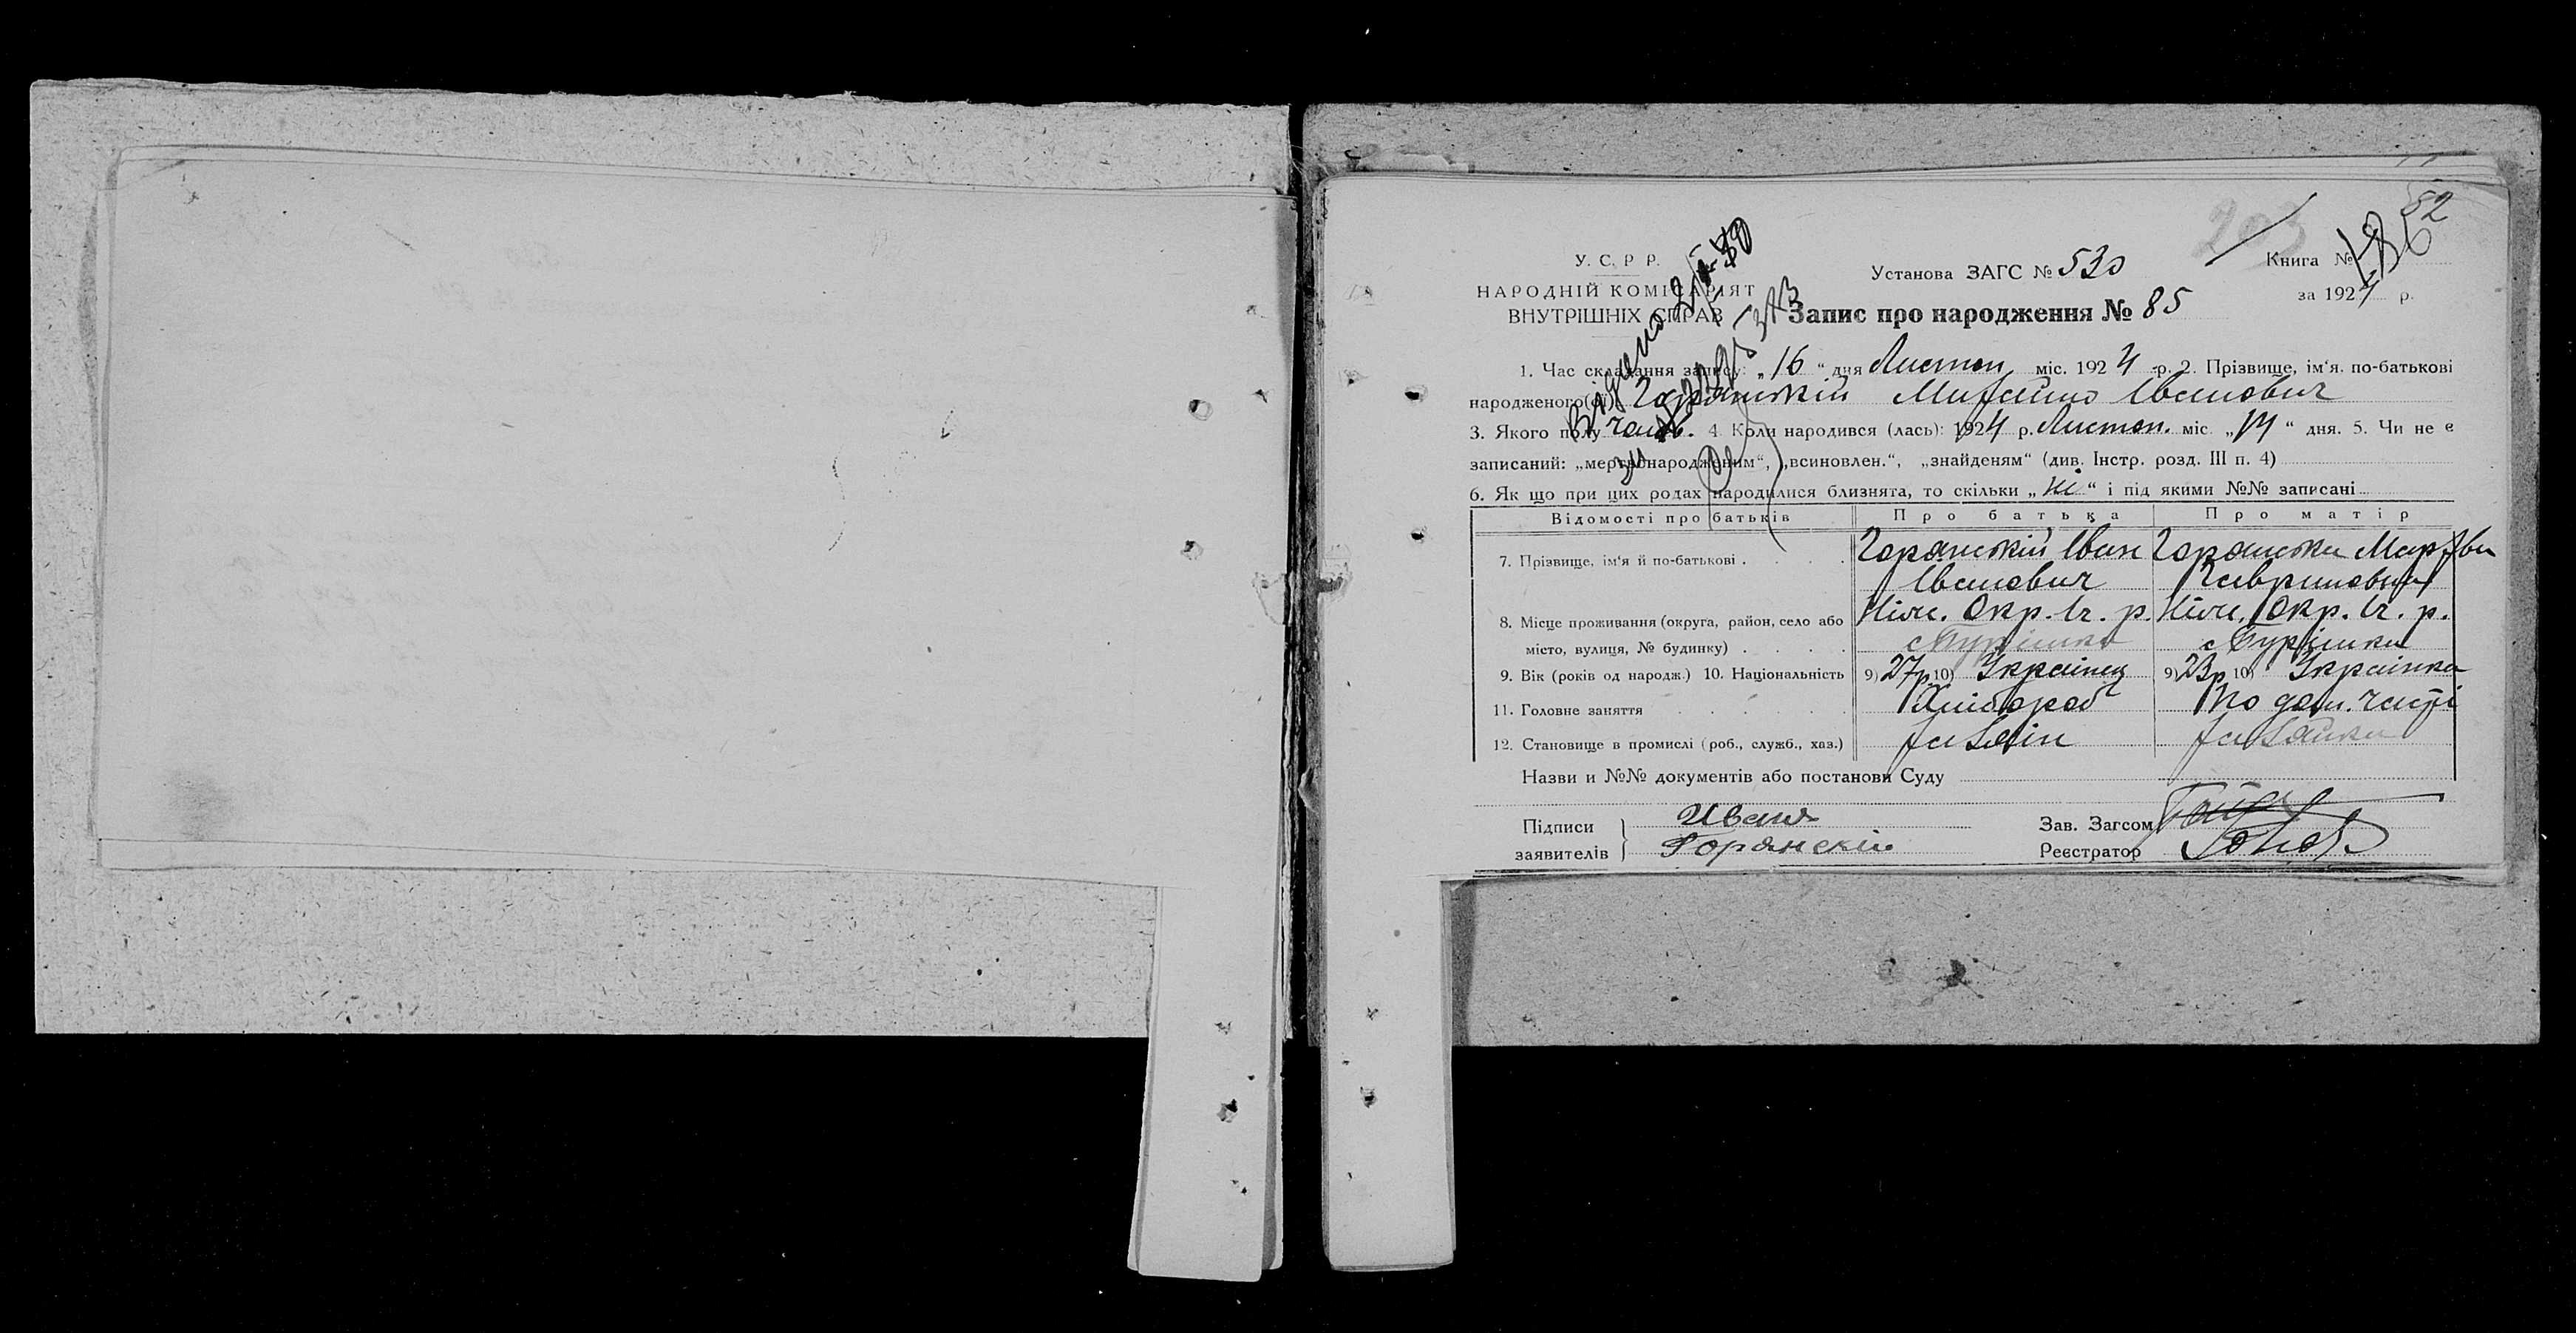 203
52
У. С. Р. Р.
Установа ЗАГС № 530
Книга № 186
НАРОДНІЙ КОМІСАРІЯТ
за 1924 р.
ВНУТРІШНІХ СПРАВ
Запис про народження № 85
1. Час складання запису: „16“ дня Листоп. міс. 1924 р. 2. Прізвище, ім'я. по-батькові
народженого(ої) Горянський Михайло Іванович
3. Якого полу чолов. 4. Коли народився (лась): 1924 р. Листоп. міс. „14“ дня. 5. Чи не є
записаний: „мертвонародженим“, „всиновлен.“, „знайденям“ (див. Інстр. розд. III п. 4)
6. Як що при цих родах народилися близнята, то скільки „ні“ і під якими №№ записані
Відомості про батьків Про батька Про матір
7. Прізвище, ім'я й по-батькові Горянський Іван Горянська Марфа
Іванович Гавриловна
8. Місце проживання (округа, район, село або Ніж. Окр. Іч. р. Ніж. Окр. Іч. р.
місто, вулиця, № будинку)
9. Вік (років од народж.) 10. Національність 9) 27р 10) Українец 9) 23р 10) Українка
11. Головне заняття Хлібороб По дом. часті
12. Становище в промислі (роб., служб., хаз.) Хазяін Хазяйка
Назви и №№ документів або постанови Суду
Підписи Иванъ Зав. Загсом
заявителів Горянскій Реєстратор